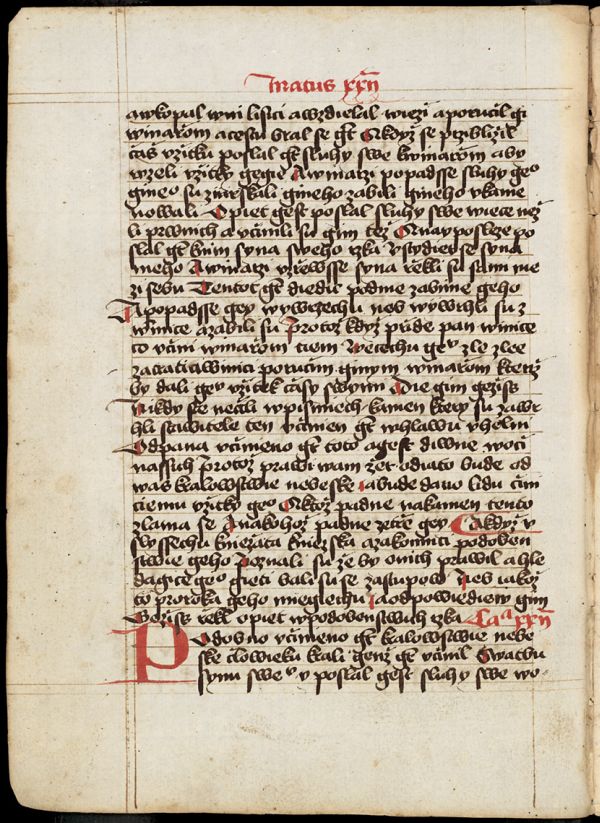 Matus xxii
a wkopal w ni lisici a wzdielal wiezi a porucil gi
winarom a cestu bral se gt A kdyz se prziblizil
czas vzitku poslal gt sluhy swe k winarom aby
wzeli vzitky gegie A winarzi popadsse sluhy geo
gineo su zmrskali gineho zabili gineho vkame
nowali Opiet gest poslal sluhy swe wiece nez
li prwnich a vcinili su gim tez A naypo­sleze po
slal gt k nim syna sweho rzka Vstydie se syna
meho A winarzi vzrewsse syna rekli su sami me
zi sebu Tentot gt diedic podme zabime geho
A popadsse gey wywrzechu neb wywrhli su z
winice a zabili su Protoz kdyz pride pan winice
co vcini winarom tiem Wecechu gev zle zlee
zatrati a winici poruci ginym winarom kterziz
by dali gev vzitek casy swymi Die gim gezis
Nikdy ste nectli w pismiech kamen ktery su zawr
hli stawitele ten vcinen gt w hlawu vhelni
Od pana vcineno gt toto a gest diwne w oci
nassich Protoz prawi wam zet odiato bude od
was kralowstwie nebeske a bude dano lidu cini
ciemu vzitky geo A ktoz padne na kamen tento
zlama se A na kohoz padne zetrze gey A kdyz v
slyssechu kniezata kniezska a zakonnici podoben
stwie geho Poznali su ze by o nich prawil a hle
dagice geo gieti bali su se zastupow Neb iakoz
to proroka geho miegiechu A odpowiediew gim
Gezis rekl opiet w podobenstwich rzka Caa xxii
Podobno vcineno gt kralowstwie nebe
ske clowieku krali genz gt vcinil swatbu
synu swev y poslal gest sluhy swe wo